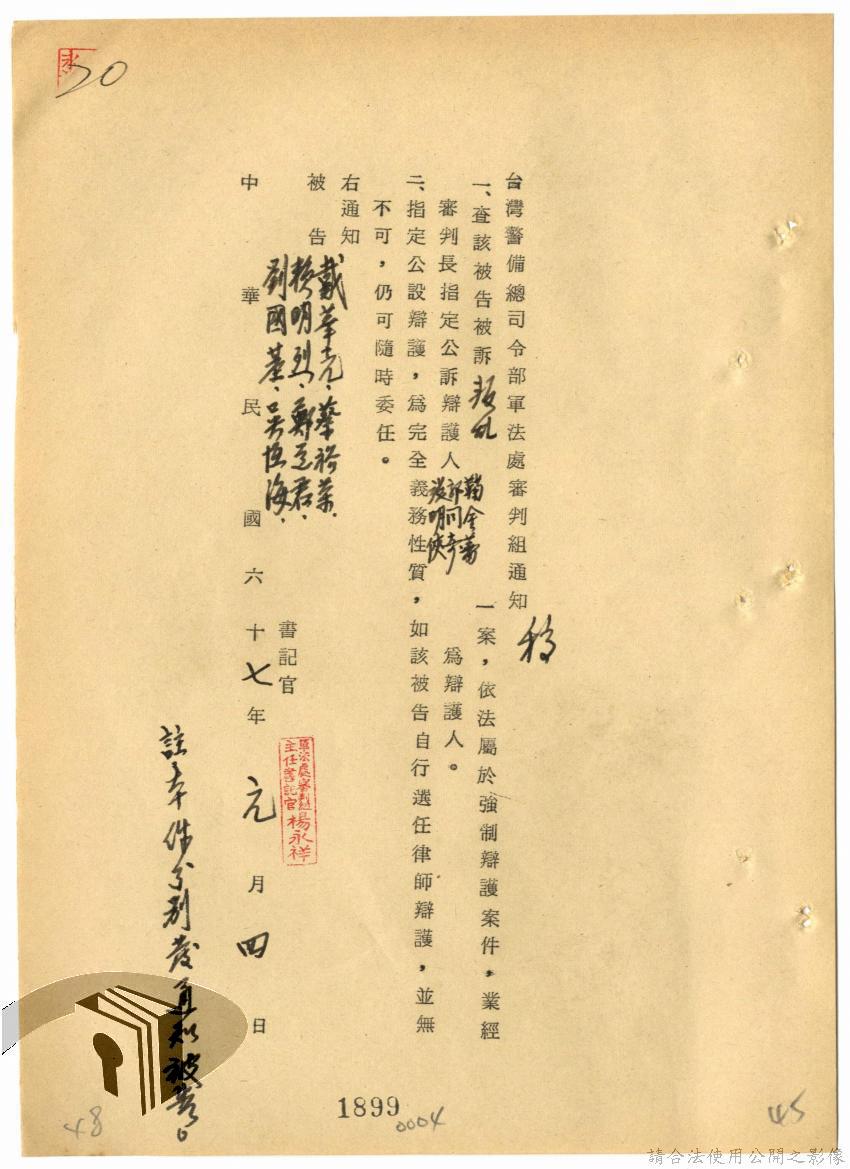 台灣警備總司令部軍法處審判組通知 稿
一、查該被告被訴 叛亂 一案，依法屬於強制辯護案件，業經
審判長指定公訴辯護人 為辯護人。
二、指定公設辯護，為完全義務性質，如該被告自行選任律師辯護，並無
不可，仍可隨時委任。
右通知
被告 戴華光、蔡裕榮、
賴明烈、鄭道君、
劉國基、吳恒海、
書記官
軍法處審判組
主任書記官楊永祥
中華民國六十七年元月四日
註：本件分別發通知被告。
1899
0004
48
45
請合法使用公開之影像